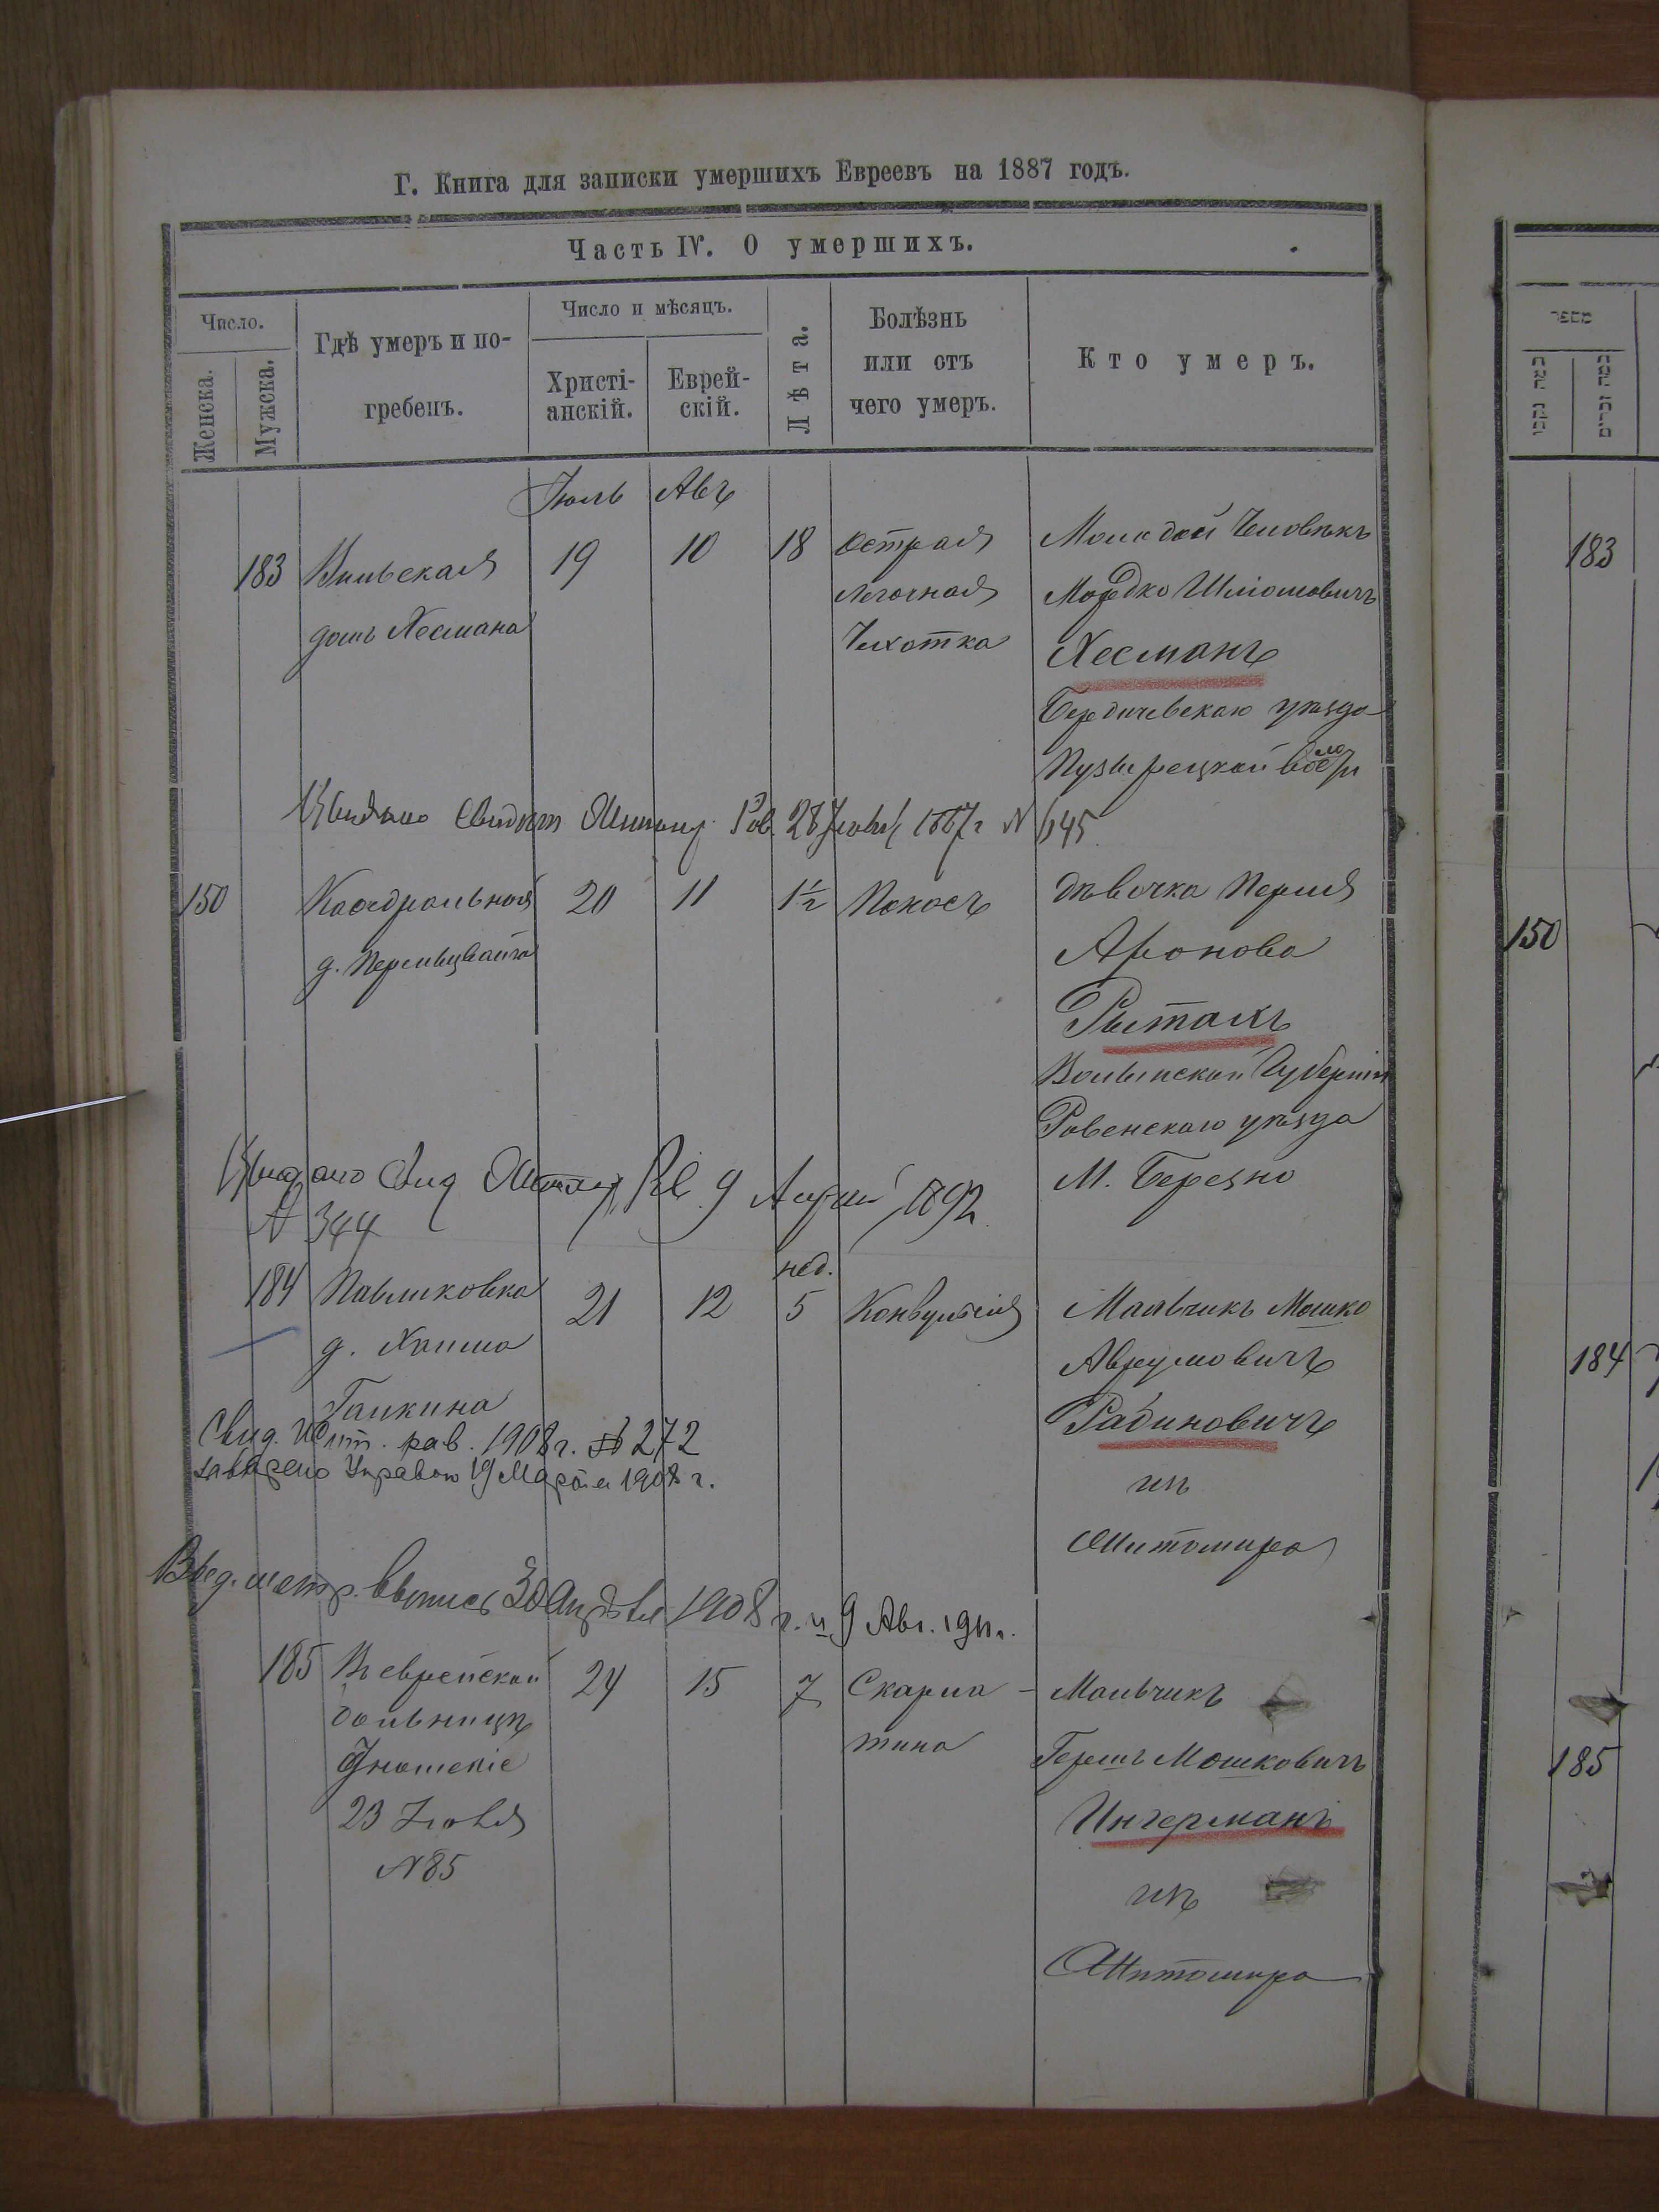 Г. Книга для записки умершихъ Евреевъ на 1887 годъ.
Часть IV. О умершихъ.
Число.
Женска.
Мужска.
Гдѣ умеръ и по-
гребенъ.
Число и мѣсяцъ.
Христі-
анскій.
Еврей-
скій.
Лѣта.
Болѣзнь
или отъ
чего умеръ.
Кто умеръ.
מספר
Іюль Авъ
183 Вильская 19 10 18 Острая Молодой Человѣкъ
домъ Хесмана легочная Мордко Шліомовичъ
Чихотка Хесманъ
Бердичевскаго уѣзда
Пузырецкой волости
Выдано Свидѣт Житомір Рав 28 1887 г N 645
150 Каѳдральной 20 11 1½ Поносъ дѣвочка Перля
д. Перельцвайга Аронова
Рытакъ
Волынской Губерніи
Ровенскаго уѣзда
М. Березно
Выдано Свид Житомир Рав 9 1892
N 344
184 Павликовка 21 12 нед. 5 Конвульсія Мальчикъ Мошко
д. Хаима Аврумовичъ
Галкина Рабиновичъ
изъ
Житомира
Свид. Жит. рав. 1908 г. № 272
заверено Управою 19 Марта 1908 г.
Выд. метр. выпись 30 Апрѣля 1908 г. и 9 Авг. 1911 г.
185 Въ еврейской 24 15 7 Скарла- Мальчикъ
больницѣ тина Гершъ Мошковичъ
Отношеніе Ингерманъ
23 Іюля изъ
N 85 Житомира
183
150
184
185